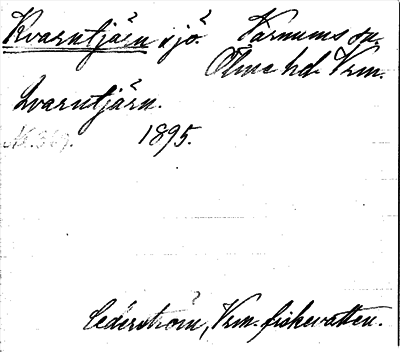 Kvarntjärn sjö. Varnums sn
Ölme hd. Vrm.
Qvarntjärn.
1895.
Cederström, Vrm. fiskevatten.